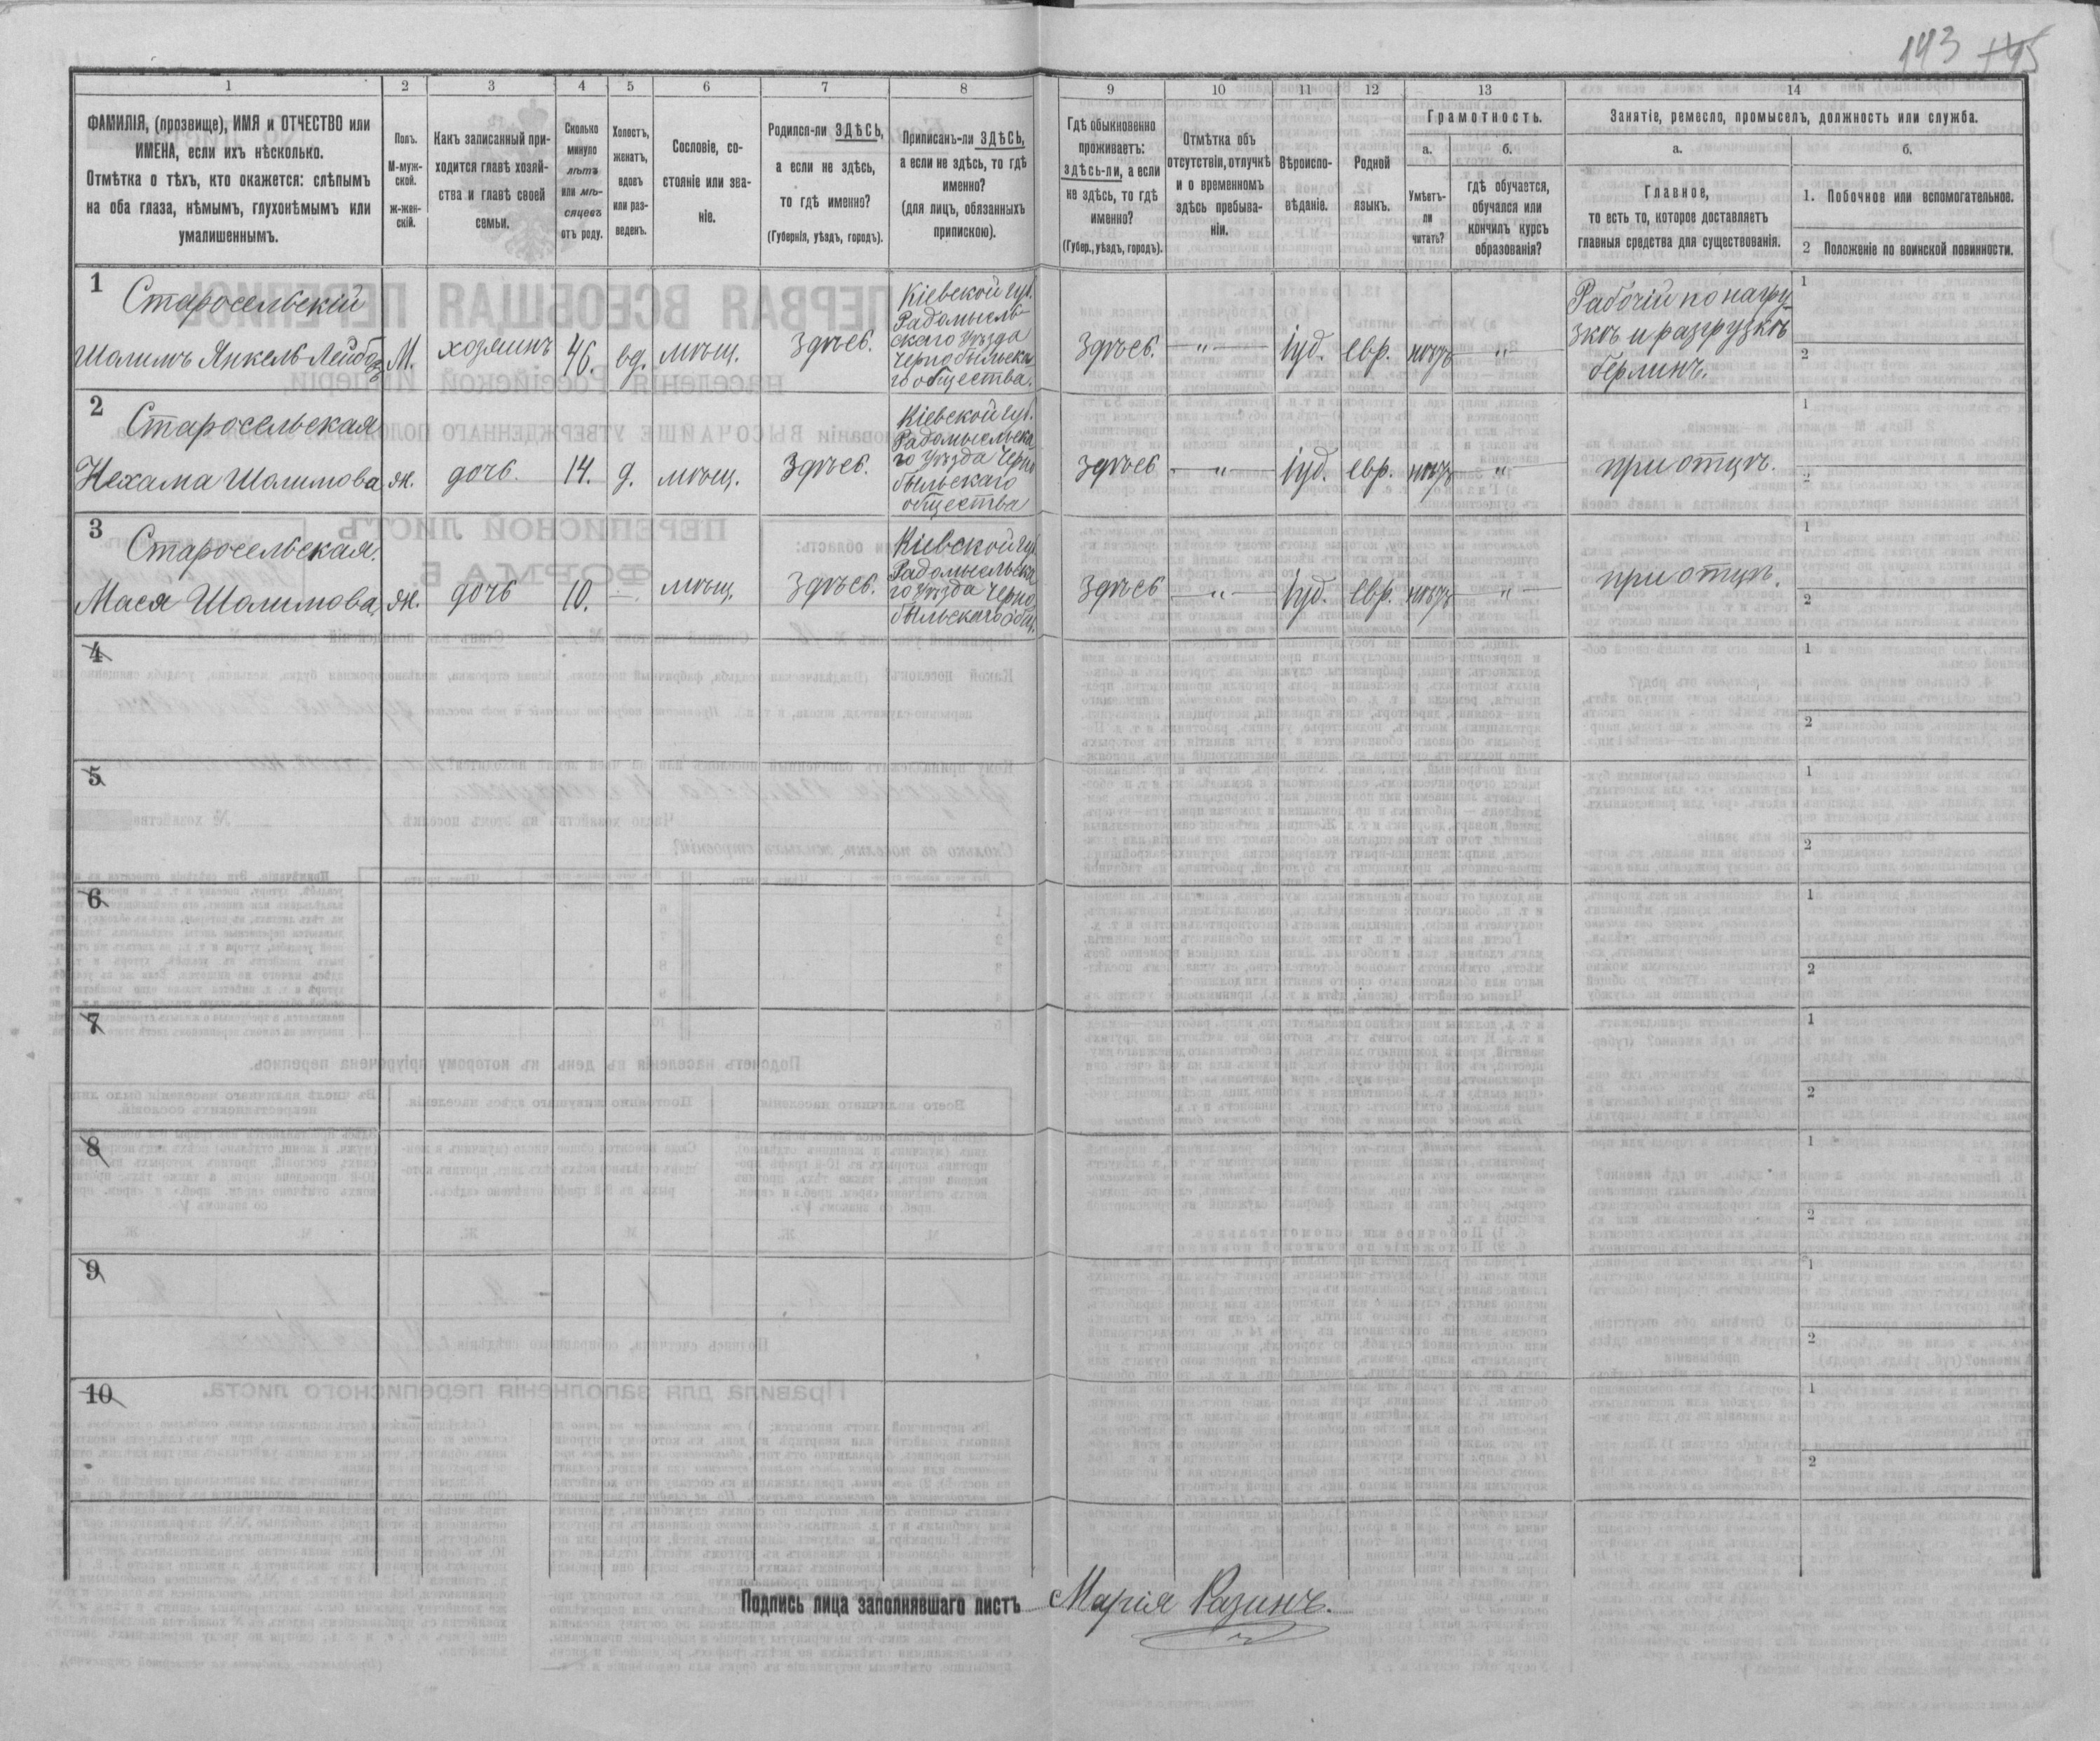 193 195
1 2 3 4 5 6 7 8 9 10 11 12 13 14
ФАМИЛІЯ, (прозвище), ИМЯ и ОТЧЕСТВО или
ИМЕНА, если ихъ нѣсколько.
Отмѣтка о тѣхъ, кто окажется: слѣпымъ
на оба глаза, нѣмымъ, глухонѣмымъ или
умалишеннымъ.
Полъ.
М-муж-
ской.
ж-жен-
скій.
Какъ записанный при-
ходится главѣ хозяй-
ства и главѣ своей
семьи.
Сколько
минуло
лѣтъ
или мѣ-
сяцевъ
отъ роду.
Холостъ,
женатъ,
вдовъ
или раз-
веденъ.
Сословіе, со-
стояніе или зва-
ніе.
Родился-ли ЗДѢСЬ,
а если не здѣсь,
то гдѣ именно?
(Губернія, уѣздъ, городъ).
Приписанъ-ли ЗДѢСЬ,
а если не здѣсь, то гдѣ
именно?
(для лицъ, обязанныхъ
припискою).
Гдѣ обыкновенно
проживаетъ:
здѣсь-ли, а если
не здѣсь, то гдѣ
именно?
(Губер., уѣздъ, городъ).
Отмѣтка объ
отсутствіи, отлучкѣ
и о временномъ
здѣсь пребыва-
ніи.
Вѣроиспо-
вѣданіе.
Родной
языкъ.
Грамотность.
а.
Умѣетъ-
ли
читать?
б.
гдѣ обучается,
обучался или
кончилъ курсъ
образованія?
Занятіе, ремесло, промыселъ, должность или служба.
а.
Главное,
то есть то, которое доставляетъ
главныя средства для существованія.
б.
1. Побочное или вспомогательное.
2 Положеніе по воинской повинности.
1
Старосельскій
Шолимъ Янкель-Лейбов
М.
хозяинъ
46.
вд.
мѣщ.
Здѣсь.
Кіевской губ.
Радомысль-
скаго уѣзда
Чернобыльска
го общества.
Здѣсь.
"
іуд.
евр.
нѣтъ
"
Рабочій по нагру-
зкѣ и разгрузкѣ
берлинъ.
1
2
2
Старосельская
Нехама Шолимова
ж.
дочь.
14.
д.
мѣщ.
Здѣсь.
Кіевской губ.
Радомысльска
го уѣзда Черно
быльскаго
общества
Здѣсь
"
іуд.
евр.
нѣтъ
"
при отцѣ.
1
2
3
Старосельская.
Мася Шолимова
ж.
дочь
10.
—
мѣщ.
Здѣсь.
Кіевской губ.
Радомысльска
го уѣзда Черно
быльскаго общ.
Здѣсь
"
іуд.
евр.
нѣтъ
"
при отцѣ.
1
2
4
1
2
5
1
2
6
1
2
7
1
2
8
1
2
9
1
2
10
1
2
Подпись лица заполнявшаго листъ Марія Разинъ.